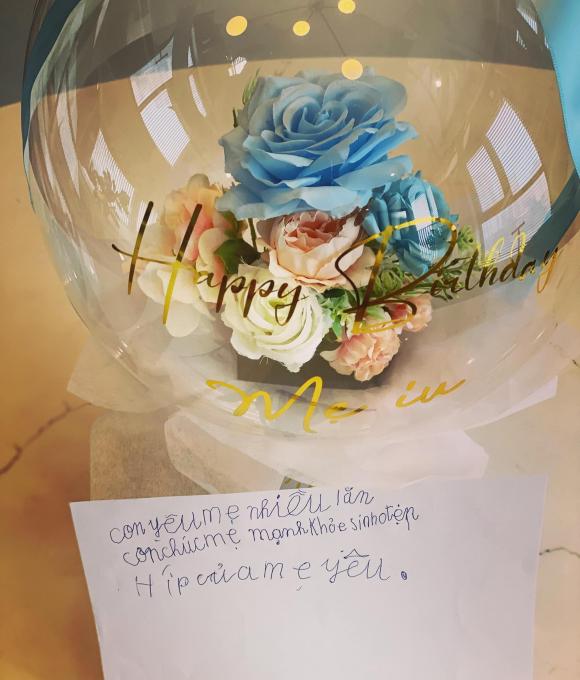 Happy Birthday
Mẹ iu
con yêu mẹ nhiều lắn
con chúc mẹ mạnh khỏe sinh đẹp
Híp của mẹ yêu.